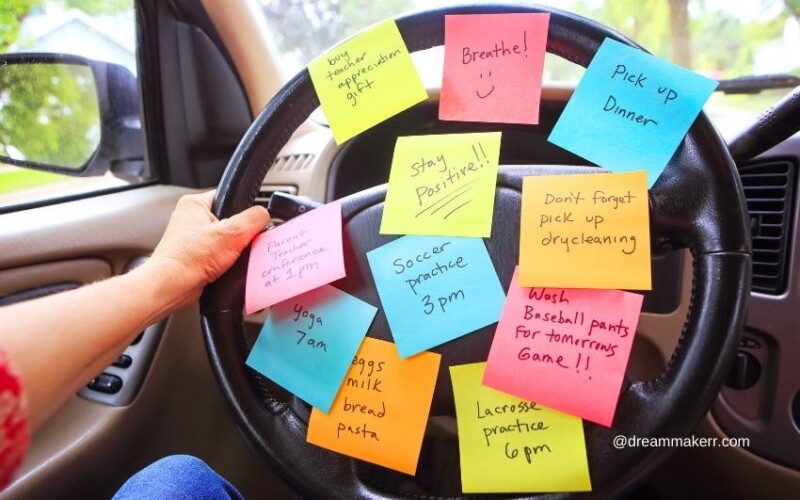 buy
teacher
appreciation
gift
Breathe!
Pick up
Dinner
Stay
Positive!!
Don't forget
pick up
drycleaning
Parent
Teacher
conference
at 1pm
Soccer
practice
3pm
Wash
Baseball pants
For tomorrows
Game!!
Yoga
7am
eggs
milk
bread
pasta
Lacrosse
practice
6pm
@dreammakerr.com